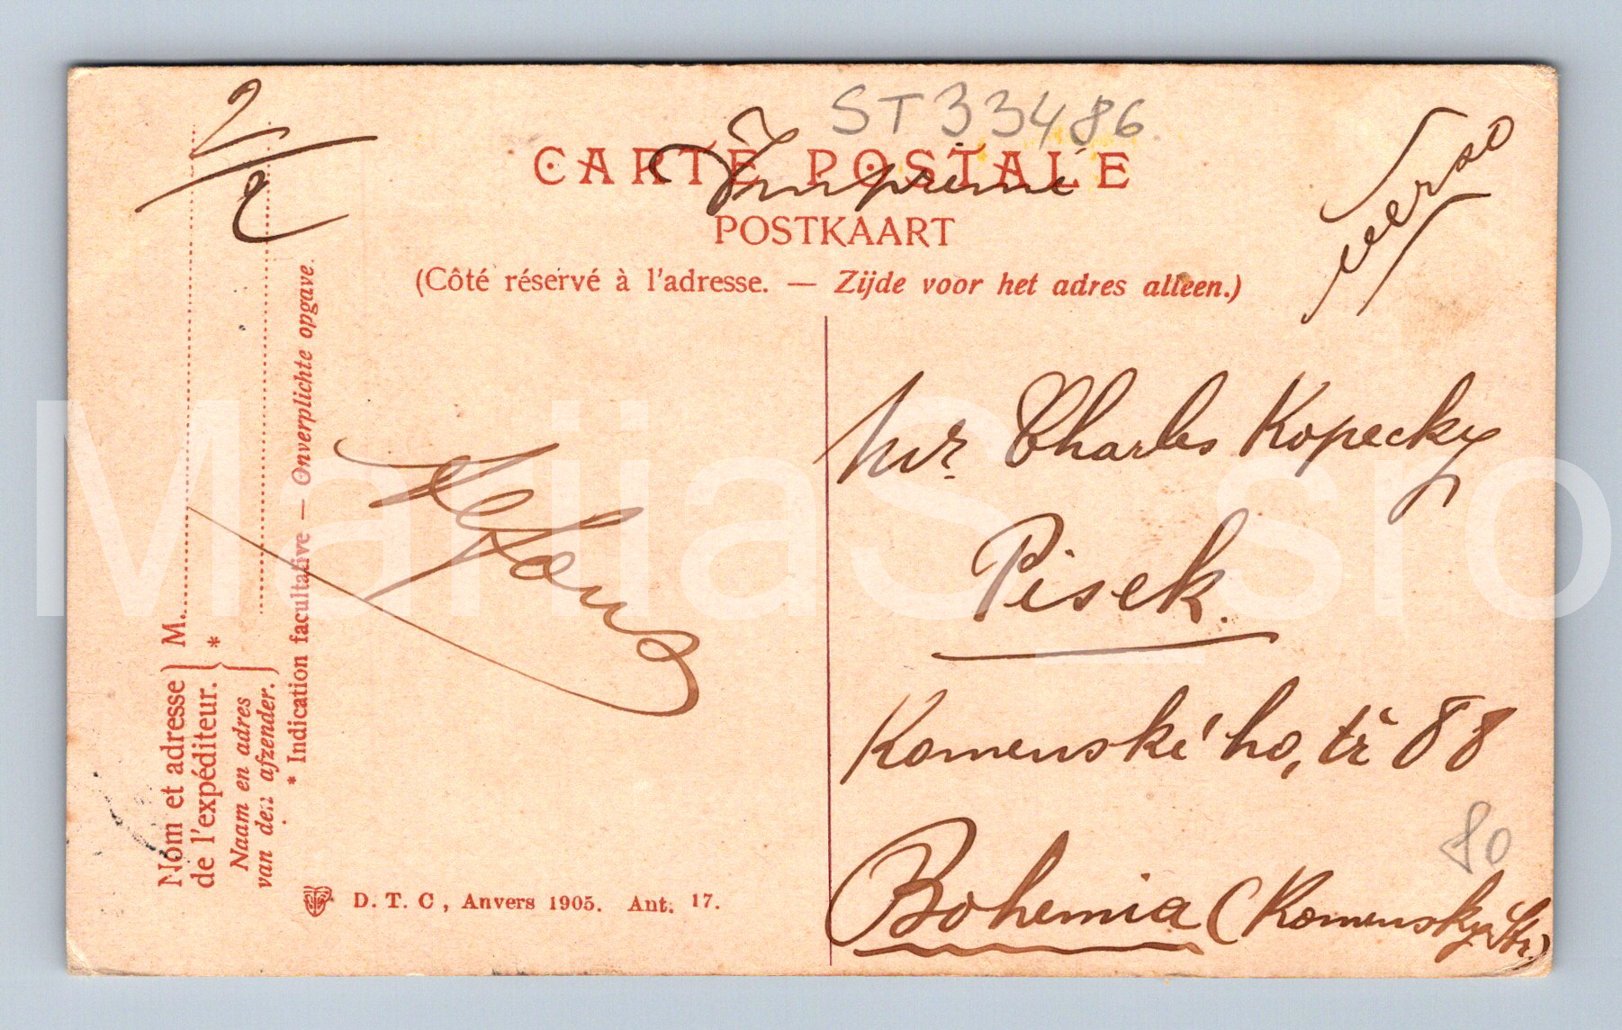 2/
ST33486
CARTE POSTALE
Imprimé
POSTKAART
(Côté réservé à l'adresse. — Zijde voor het adres alleen.)
verso
Nom et adresse de l'expéditeur. } M.
Naam en adres van den afzender. } *
* Indication facultative — Onverplichte opgave.
Mr. Charles Kopecky
Pisek.
Komenské ho, tř 88
80
Bohemia (Komensky Str.)
D. T. C, Anvers 1905. Ant. 17.
MariiaS_sro